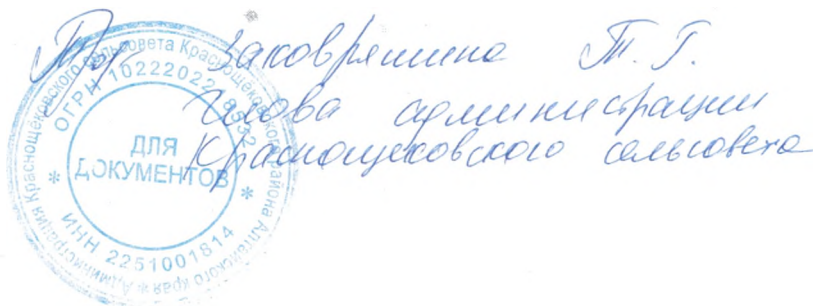 Заковряшина Т. Г.
глава администрации
Краснощековского сельсовета
Администрация Краснощёковского сельсовета Краснощёковского района Алтайского края *
ОГРН 10222022
ДЛЯ
ДОКУМЕНТОВ
* *
ИНН 2251001814